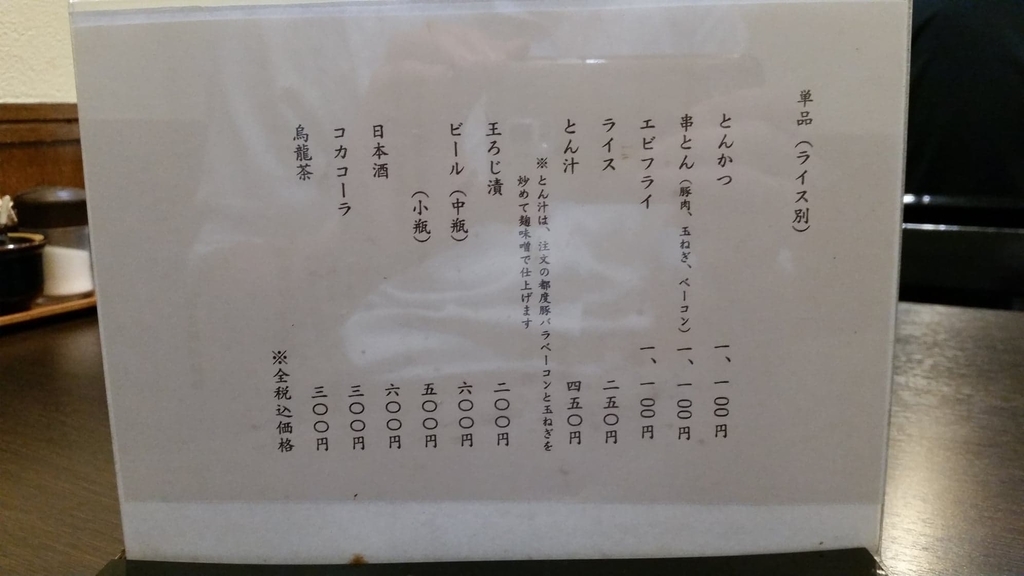 単品（ライス別）
とんかつ 一、一〇〇円
串とん（豚肉、玉ねぎ、ベーコン） 一、一〇〇円
エビフライ 一、一〇〇円
ライス 二五〇円
とん汁 四五〇円
※とん汁は、注文の都度豚バラベーコンと玉ねぎを
炒めて麹味噌で仕上げます
王ろじ漬 二〇〇円
ビール（中瓶） 六〇〇円
（小瓶） 五〇〇円
日本酒 六〇〇円
コカコーラ 三〇〇円
烏龍茶 三〇〇円
※全税込価格